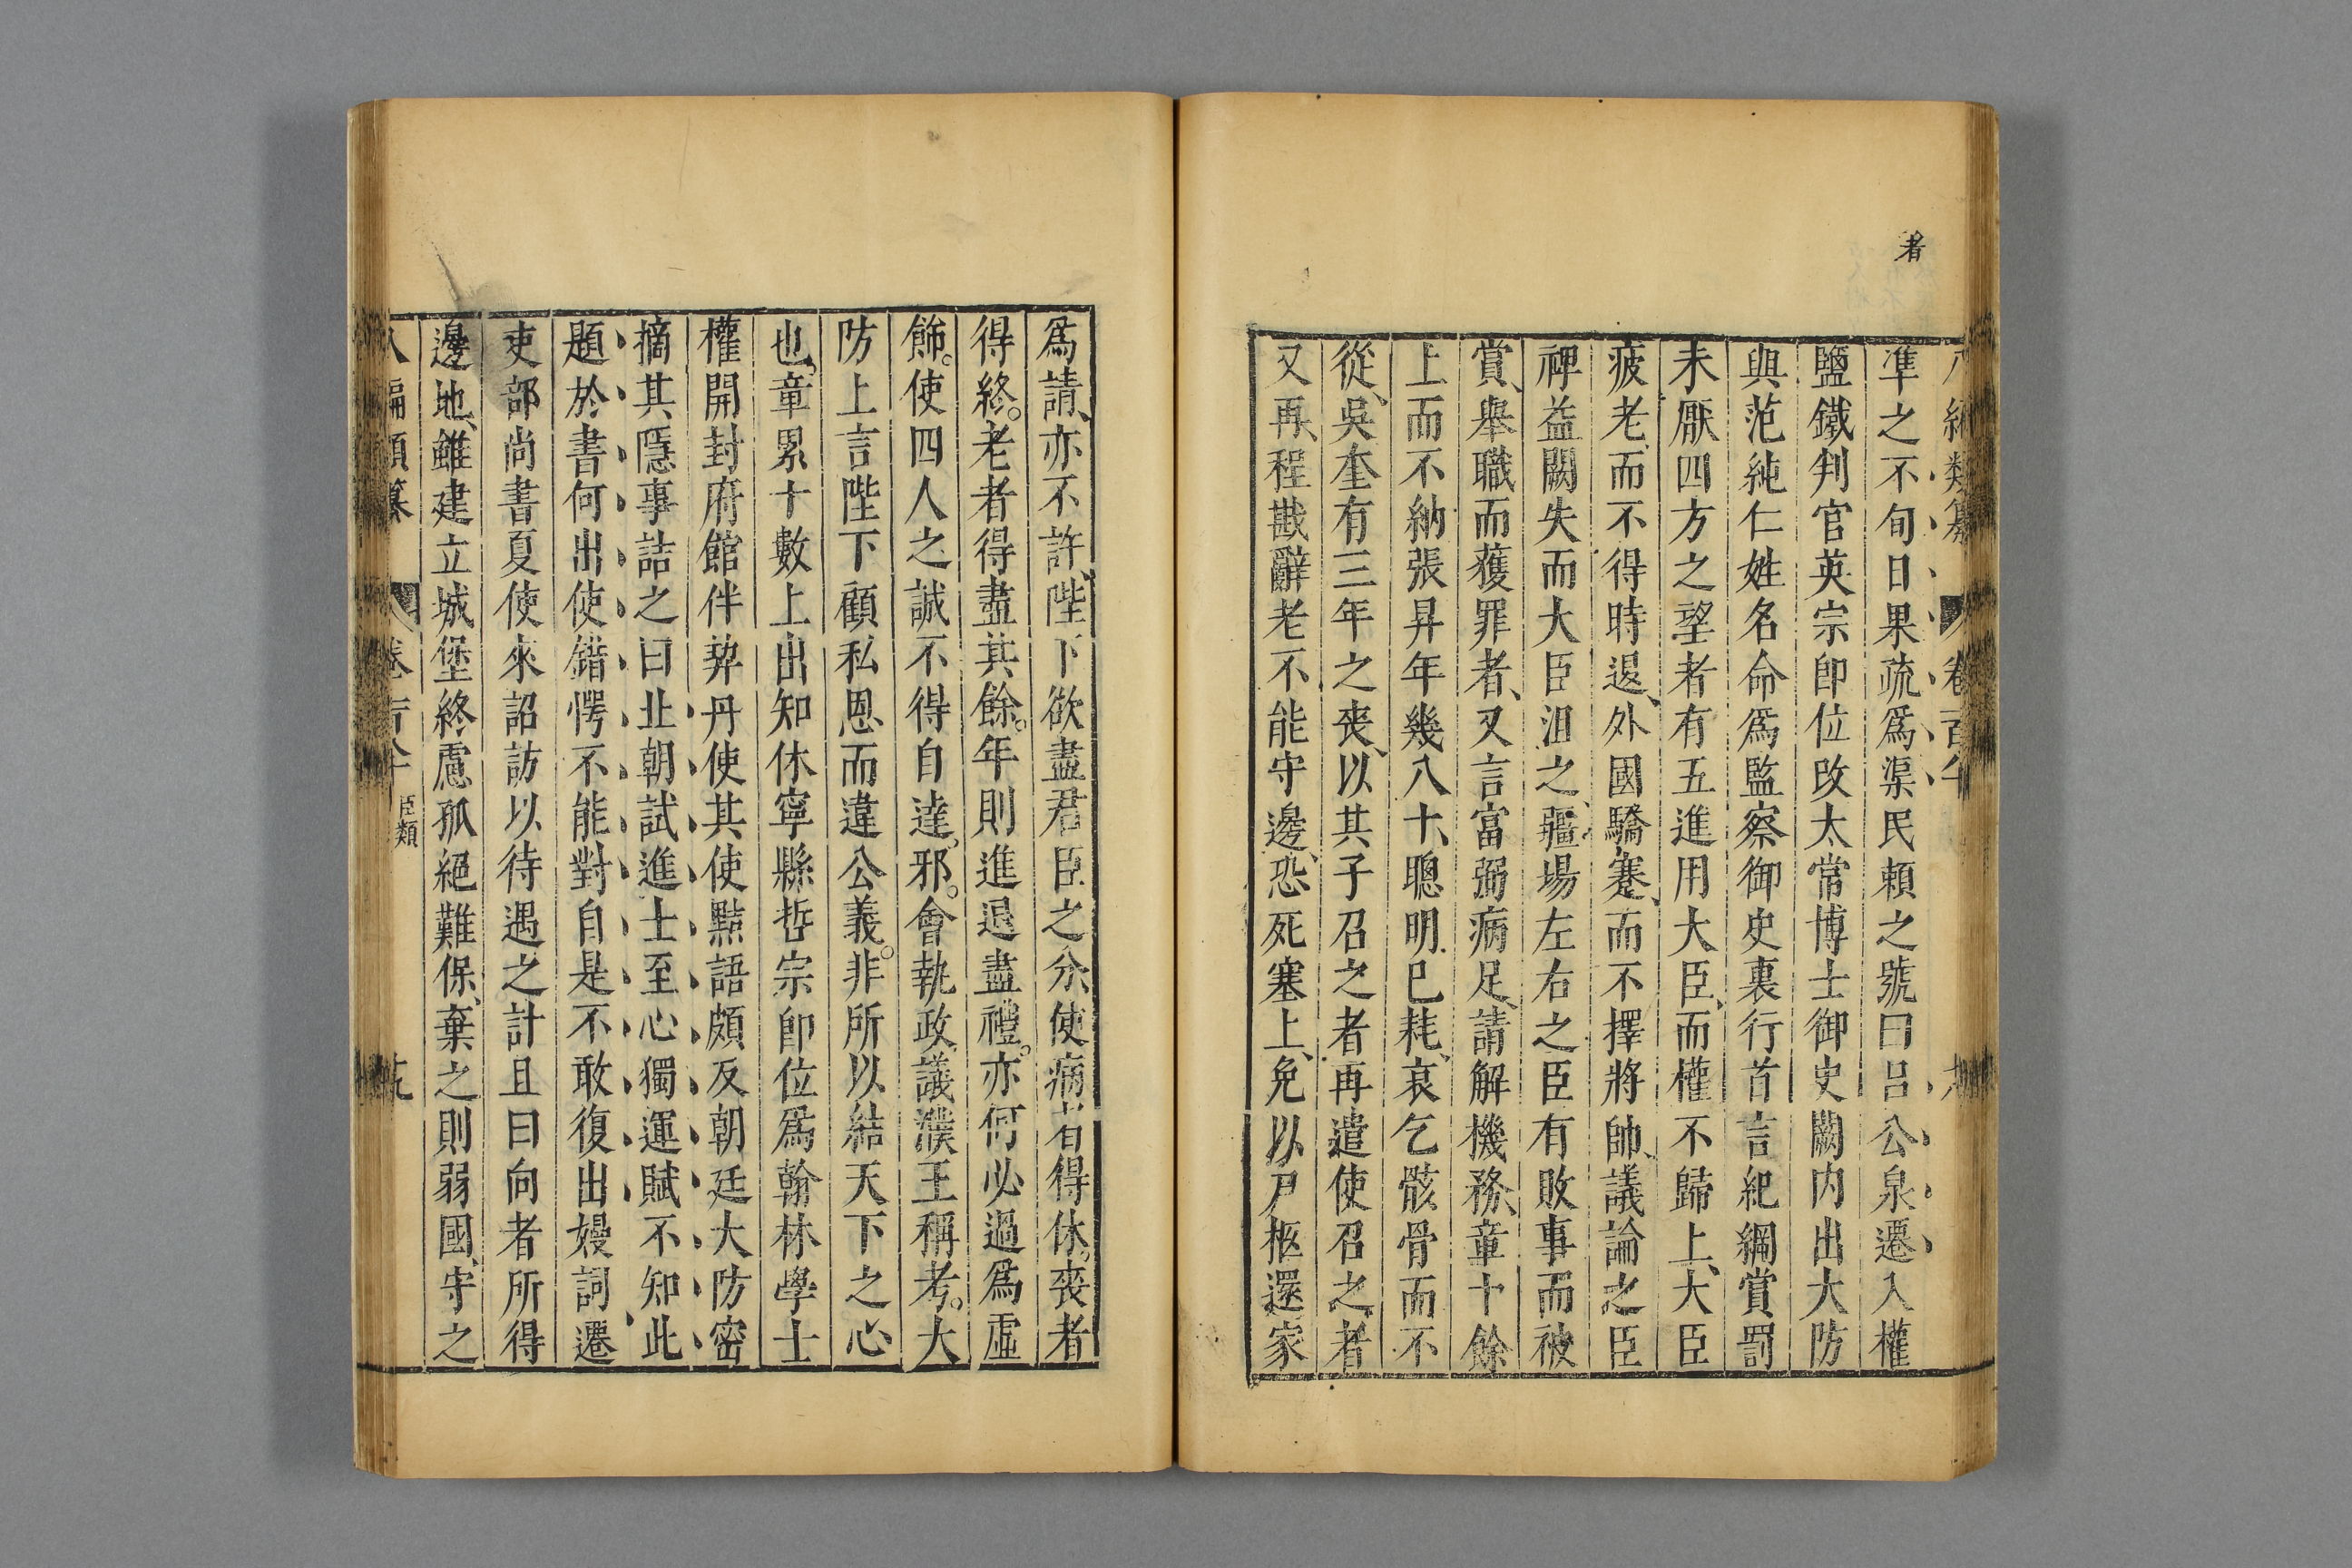 者
準之不旬日果疏爲渠民賴之號曰呂公泉遷入權
鹽鐵判官英宗卽位改太常博士御史闕內出大防
與范純仁姓名命爲監察御史裏行首言紀綱賞罰
未厭四方之望者有五進用大臣而權不歸上大臣
疲老而不得時退外國驕蹇而不擇將帥議論之臣
裨益闕失而大臣沮之疆場左右之臣有敗事而被
賞舉職而獲罪者又言富弼病足請解機務章十餘
上而不納張昇年幾八十聰明已耗哀乞骸骨而不
從吳奎有三年之喪以其子召之者再遣使召之者
又再程戡辭老不能守邊恐死塞上免以尸柩還家
爲請亦不許陛下欲盡君臣之分使病者得休喪者
得終。老者得盡其餘。年則進退盡禮。亦何必過爲虛
飾。使四人之誠不得自達邪。會執政議濮王稱考。大
防上言陛下顧私恩而違公義。非所以結天下之心
也章累十數上出知休寧縣哲宗卽位爲翰林學士
權開封府館伴契丹使其使黠語頗反朝廷大防密
摘其隱事詰之曰北朝試進士至心獨運賦不知此
題於書何出使錯愕不能對自是不敢復出嫚詞遷
吏部尚書夏使來詔訪以待遇之計且曰向者所得
邊地雖建立城堡終慮孤絕難保棄之則弱國守之
臣類